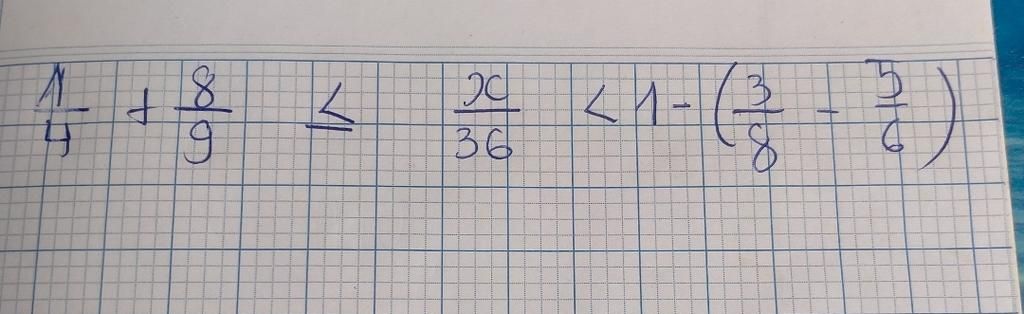 1/4 + 8/9 ≤ x/36 < 1 - (3/8 - 5/6)